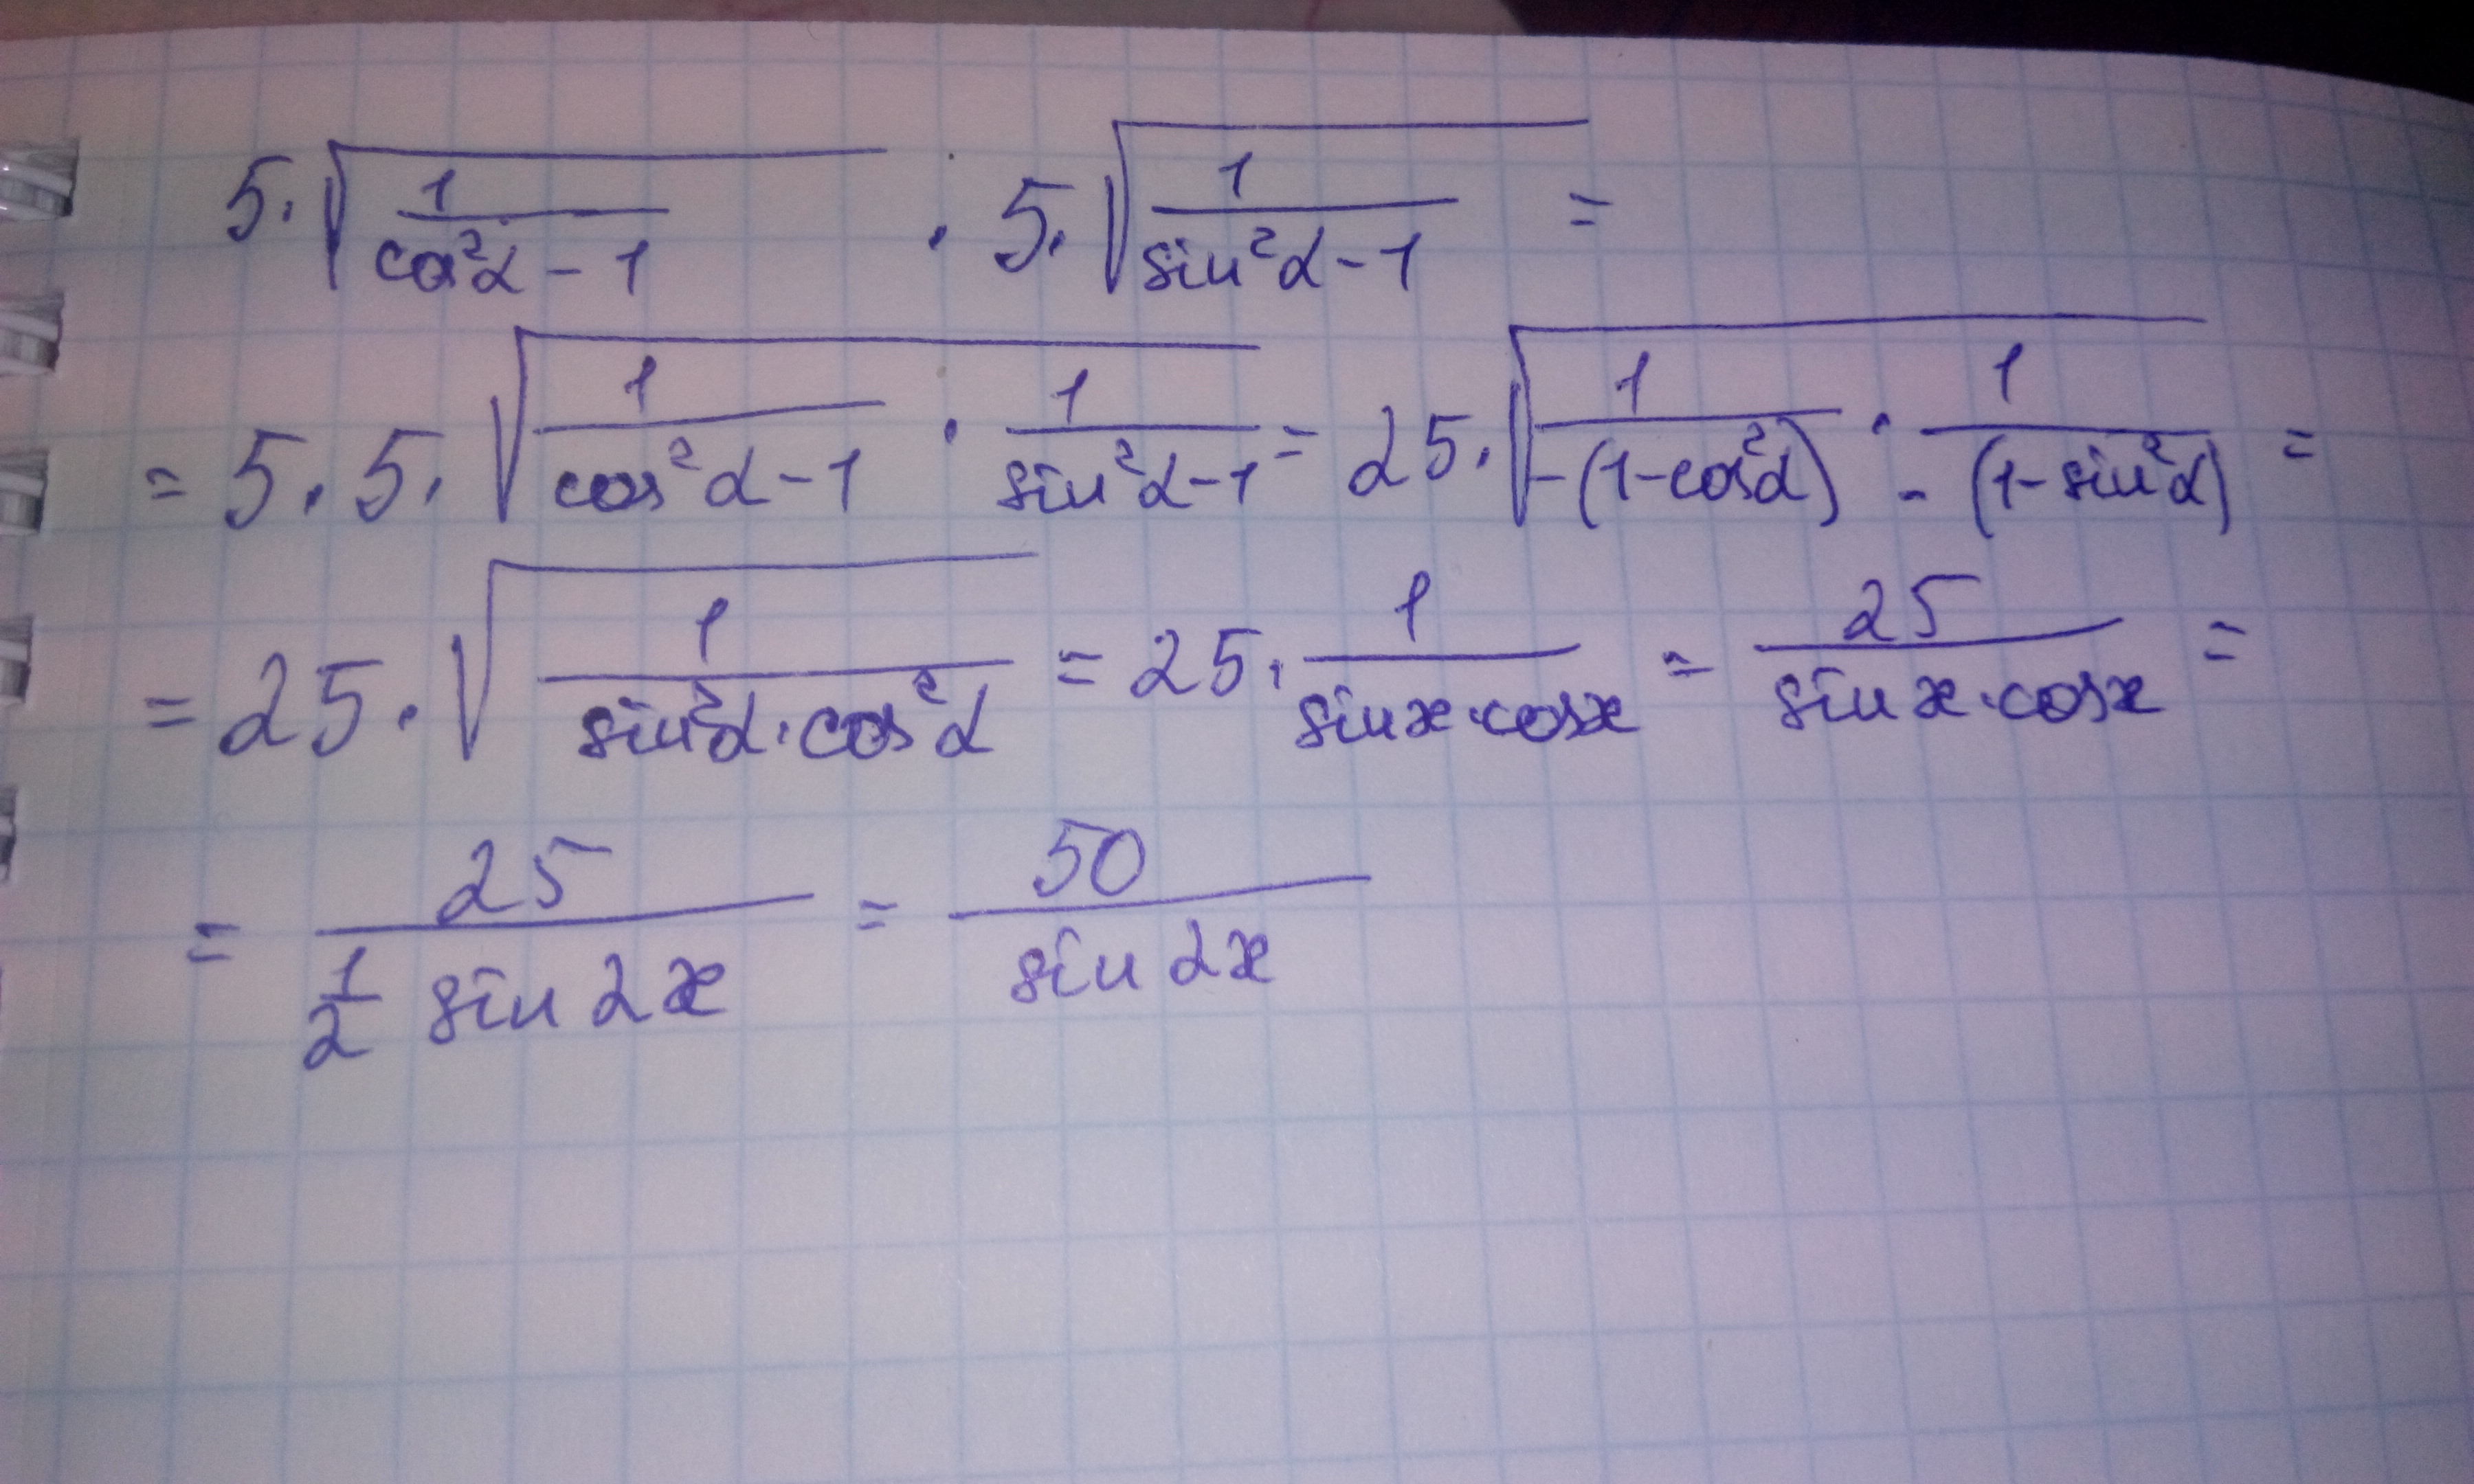 5·√(1/(cos²α-1)) · 5·√(1/(sin²α-1)) =
= 5·5·√(1/(cos²α-1) · 1/(sin²α-1)) = 25·√(1/(-(1-cos²α)) · 1/(-(1-sin²α))) =
= 25·√(1/(sin²α·cos²α)) = 25·1/(sinx·cosx) = 25/(sinx·cosx) =
= 25/(1/2 sin2x) = 50/(sin2x)